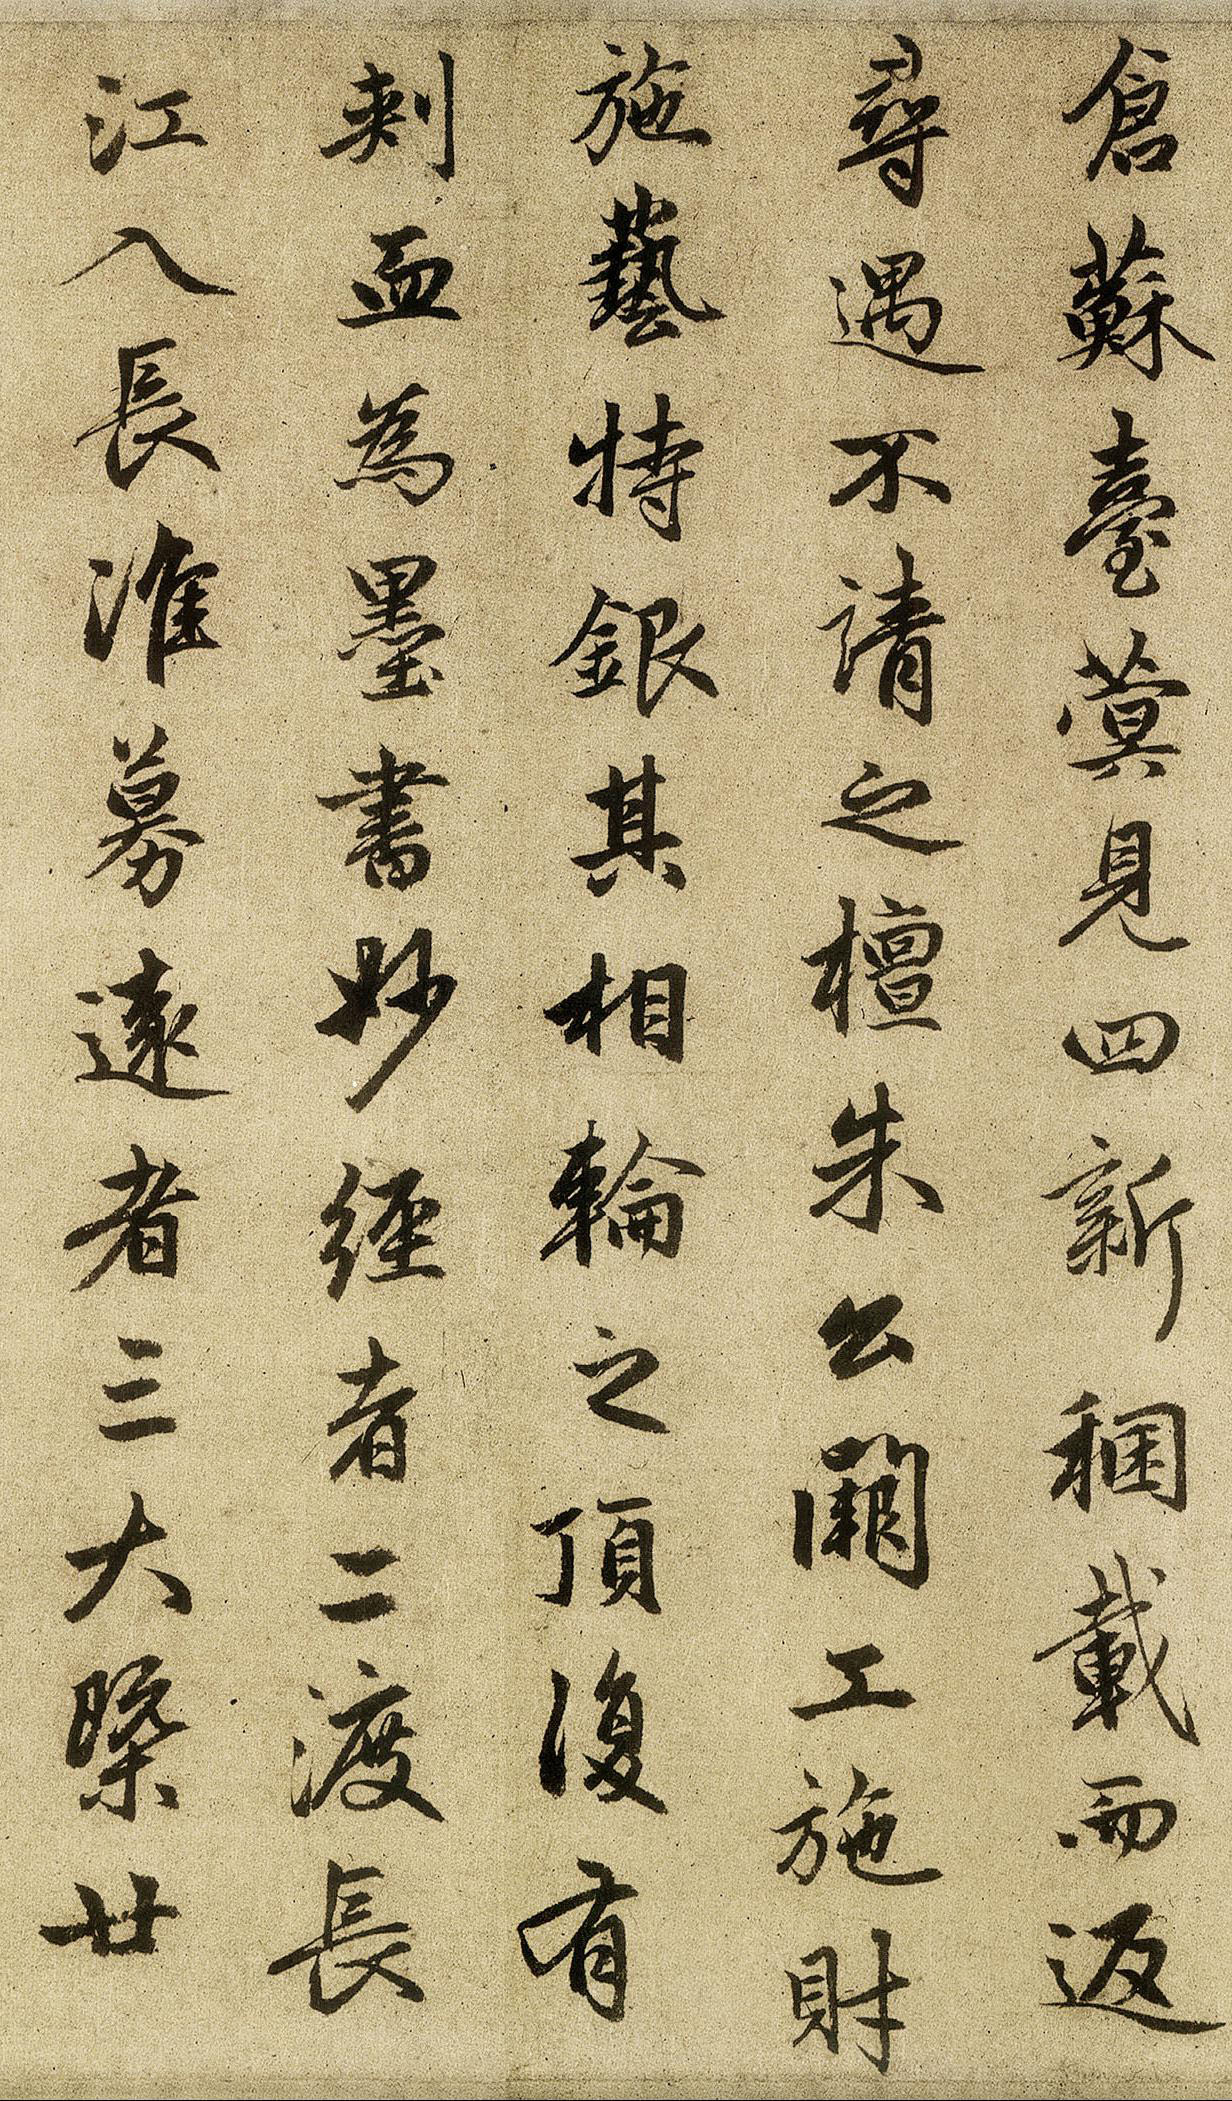 倉蘇臺蓂見四新稛載而返
尋遇不請之檀朱公關工施財
施藝特銀其相輪之頂復有
刺血為墨書妙經者二渡長
江入長淮募遠者三大槩廿